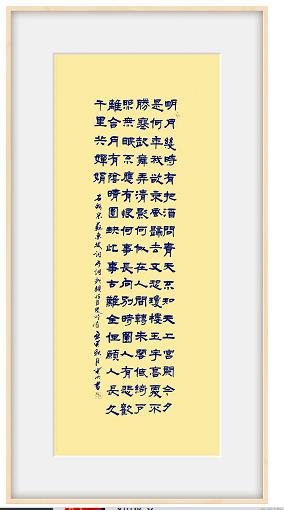 明月幾時有把酒問青天不知天上宮闕今夕
是何年我欲乘風歸去又恐瓊樓玉宇高處不
勝寒起舞弄清影何似在人間轉朱閣低綺戶
照無眠不應有恨何事長向別時圓人有悲歡
離合月有陰晴圓缺此事古難全但願人長久
千里共嬋娟